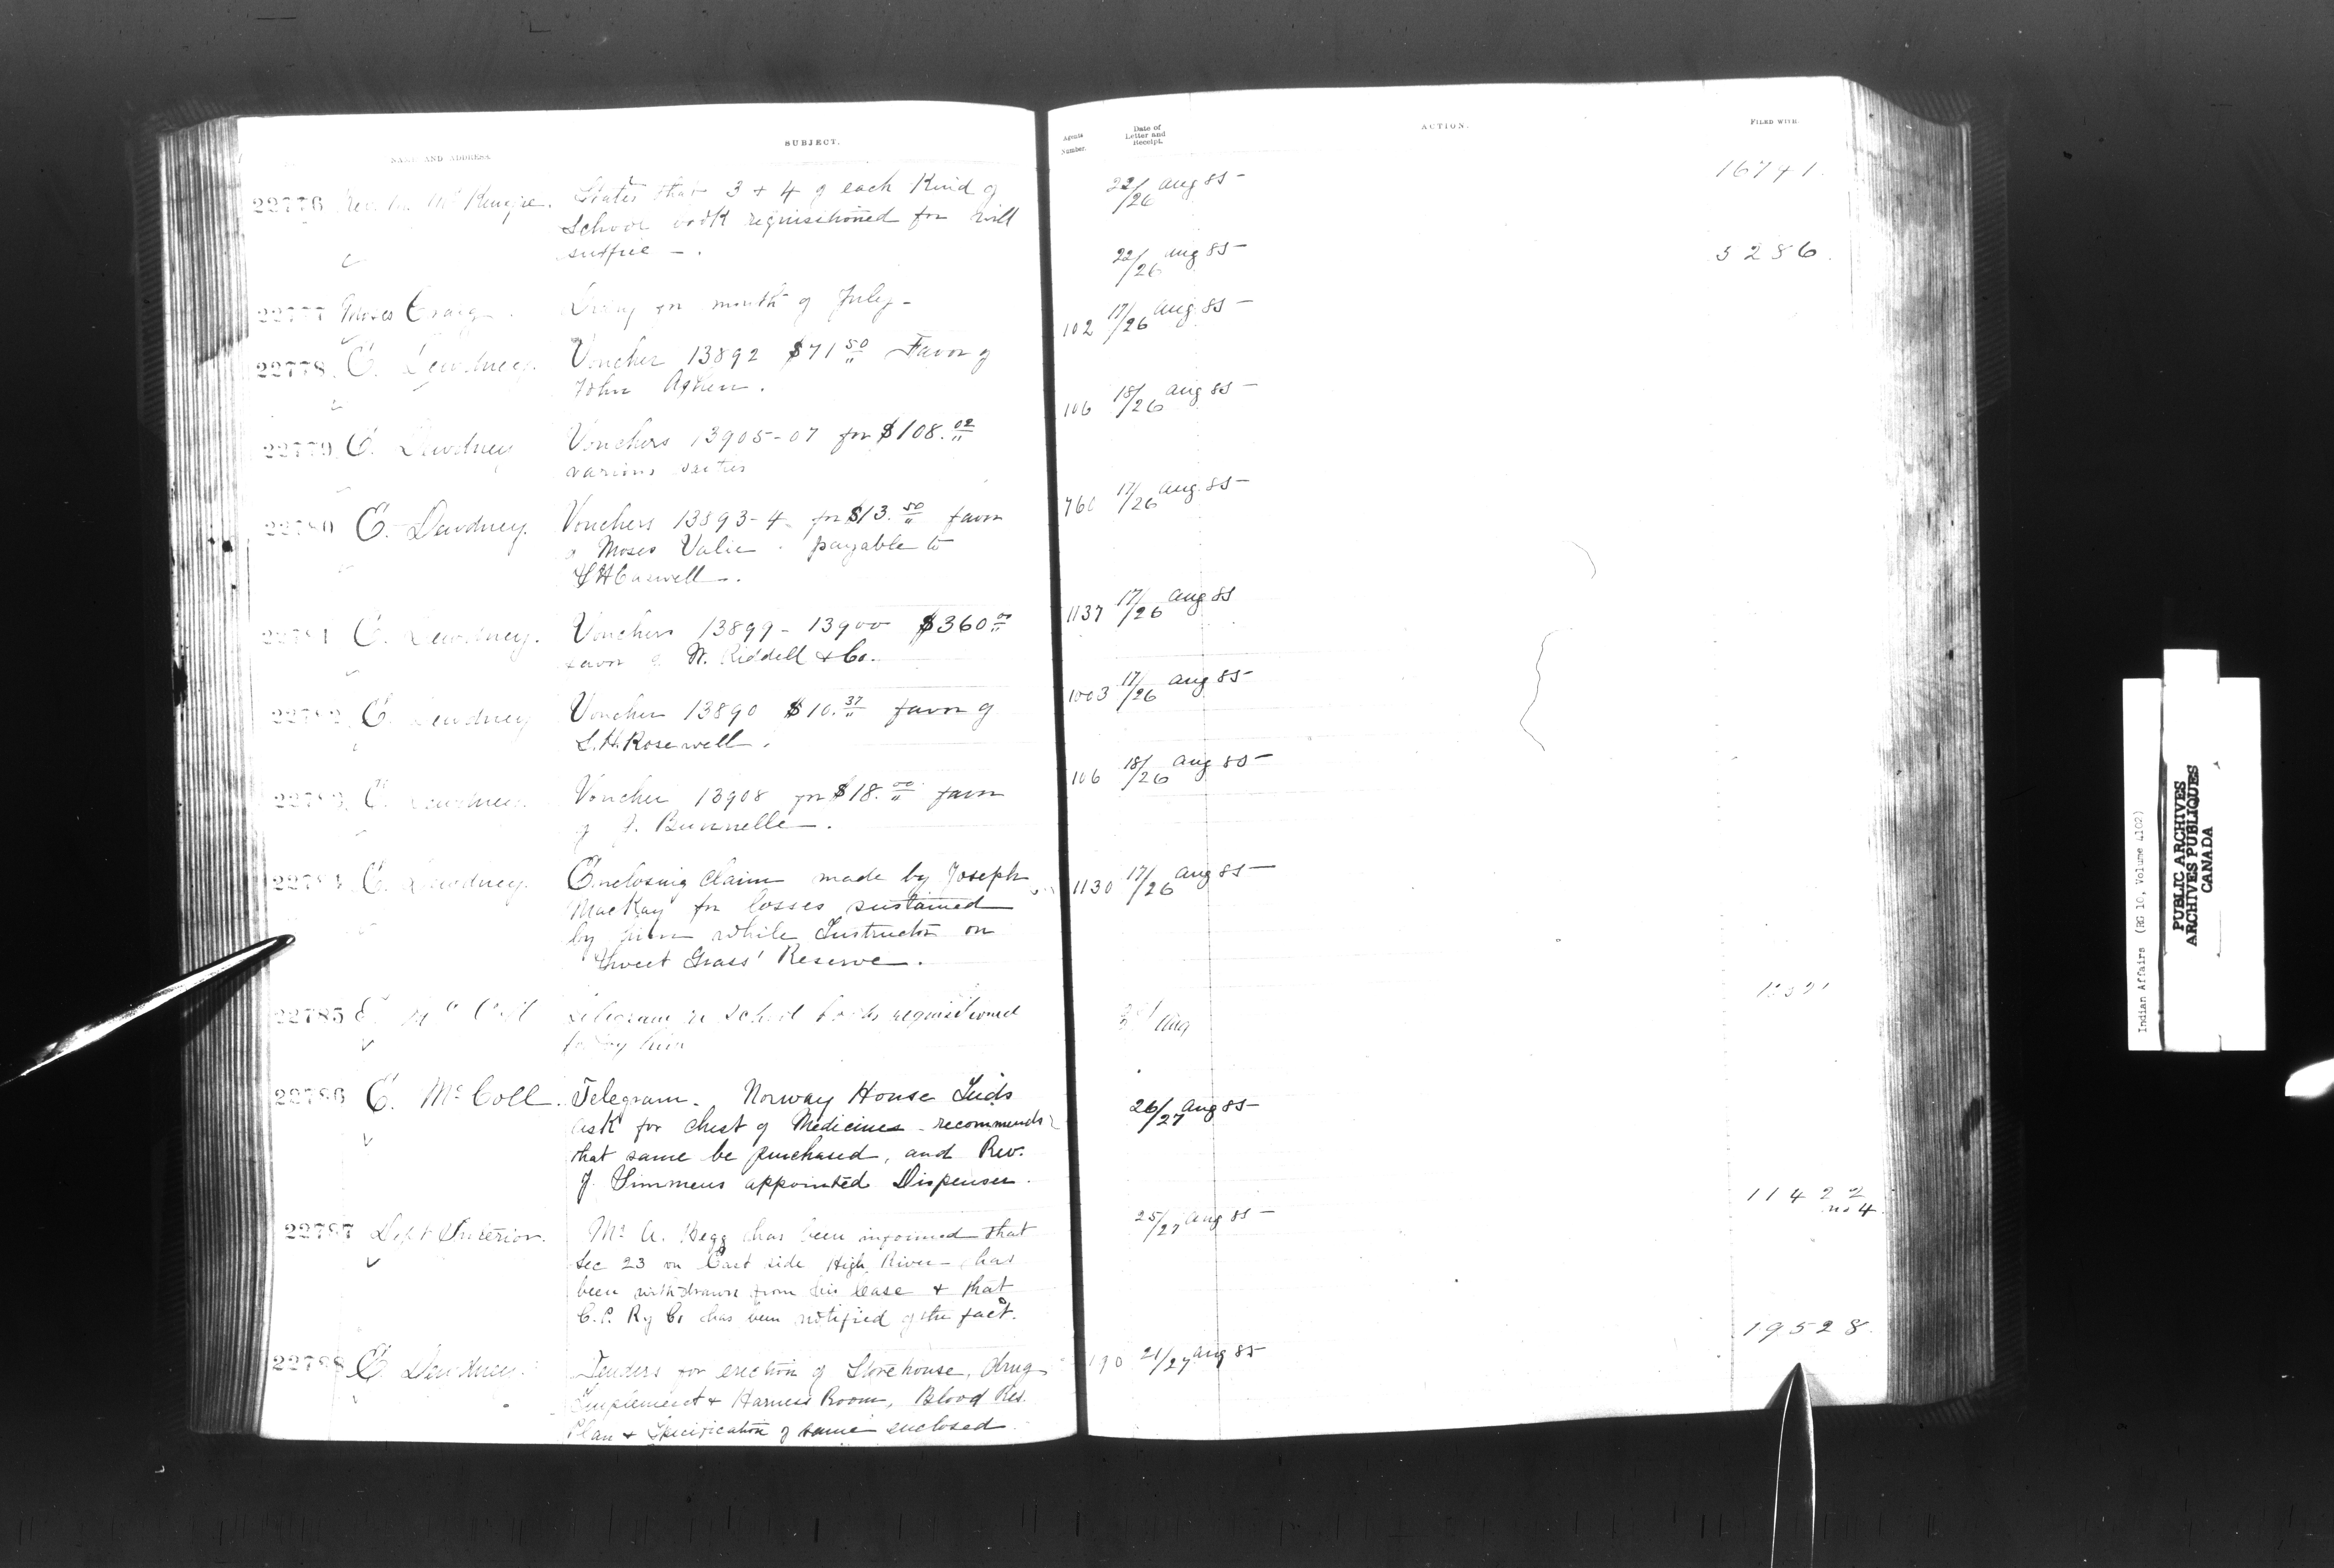 NAME AND ADDRESS.
SUBJECT.
22776 Rev. McKenzie. States that 3 + 4 of each Kind of
School book requisitioned for will
suffice - .
22777 Moses Craig . Diary for month of July -
22778. E. Dewdney. Voucher 13892 $71 50 Favor of
John Ashen .
22779 E. Dewdney Vouchers 13905-07 for $108. 02
various parties
22780 E. Dewdney. Vouchers 13893-4 - for $13. 50 favor
of Moses Valie . payable to
Caswell - .
22781 E. Dewdney. Vouchers 13899 - 13900 $360 00
favor of W. Riddell & Co.
22782 E. Dewdney Voucher 13890 $10. 37 favor of
S. H. Rosewell .
22783 E. Dewdney. Voucher 13908 for $18. 00 favor
of J. Bunnelle .
22784 E. Dewdney. Enclosing claim made by Joseph
MacKay for losses sustained
by him while Instructor on
Sweet Grass' Reserve .
22785 E. McColl Telegram re School books requisitioned
for by him
22786 E. McColl. Telegram. Norway House Inds
ask for chest of Medicines - recommends
that same be purchased, and Rev.
J. Simmens appointed Dispenser .
22787 Dept Interior. Mr A. Begg has been informed that
Sec 23 on East side High River - has
been withdrawn from his lease & that
C. P. Ry Co has been notified of the fact.
22788 E. Dewdney. Tenders for erection of Storehouse, drug
Implement & Harness Room, Blood Res.
Plan & Specification of same enclosed
Agents
Number.
Date of
Letter and
Receipt.
ACTION.
FILED WITH.
22/26 Aug 85 - 16741.
22/26 Aug 85 - 5286.
102 17/26 Aug. 85 -
106 18/26 Aug 85 -
17/26 Aug. 85 -
1137 17/26 Aug 85
1003 17/26 Aug 85 -
106 18/26 Aug 85 -
1130 17/26 Aug 85 -
Aug
26/27 Aug 85 -
25/27 Aug 85 - 11422
no 4.
21/27 Aug 85 - 19528
Indian Affairs (RG 10, Volume 4102)
PUBLIC ARCHIVES
ARCHIVES PUBLIQUES
CANADA